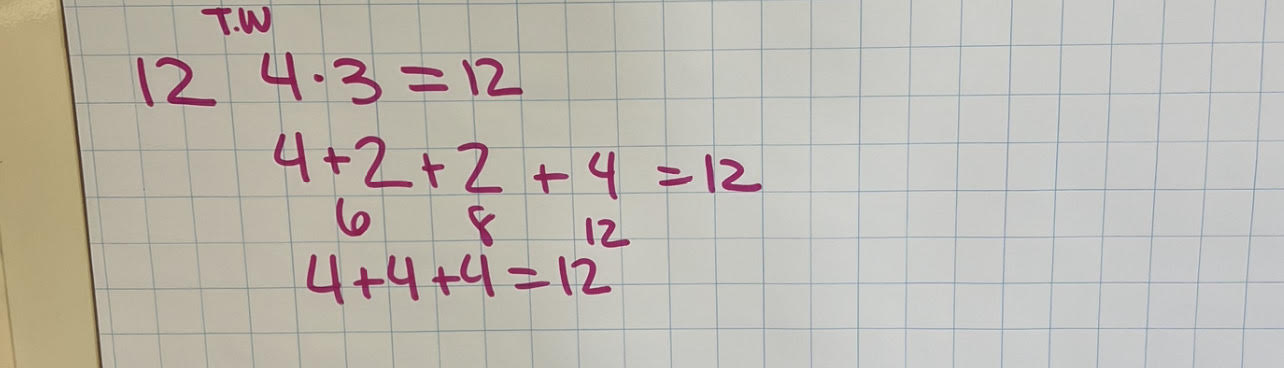 T.W
12 4·3=12
4+2+2+4=12
6 8 12
4+4+4=12